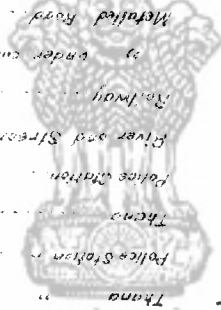 Thana "
Police Station "
Thana
Police Station
River and Stream
Railway
" under
Metalled Road